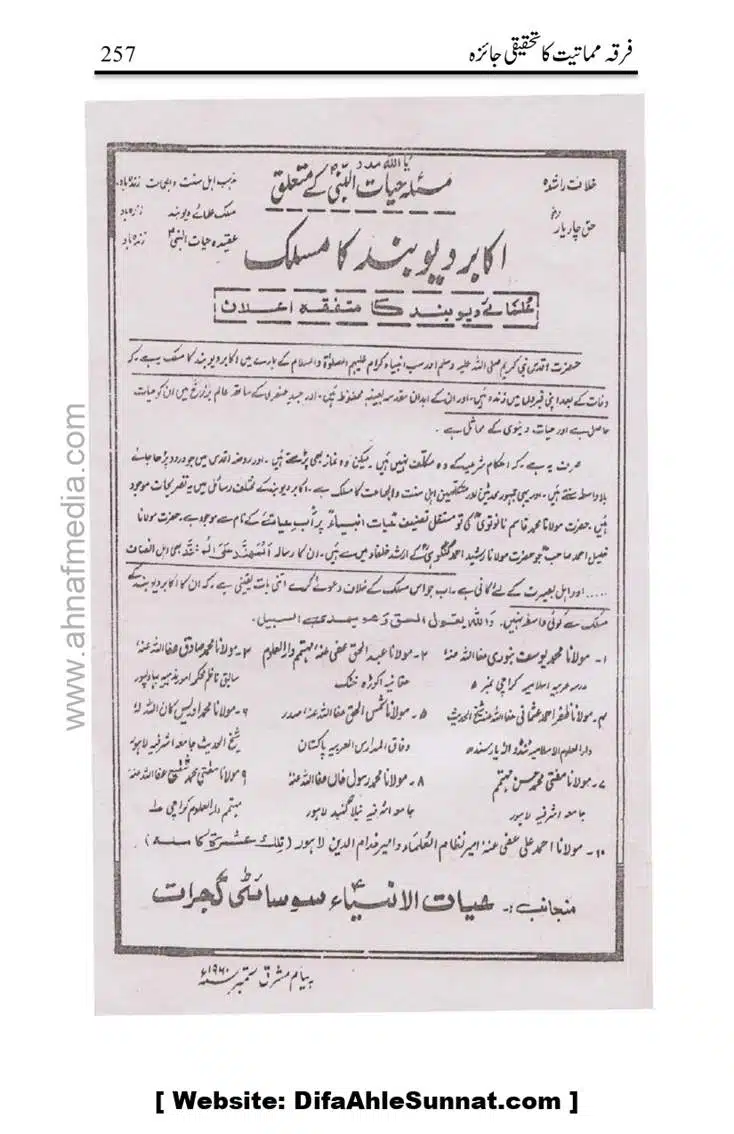 فرقہ مماتیت کا تحقیقی جائزہ 257
یا اللہ مدد
خلافت راشدہ
حق چار یارؓ
مسئلہ حیات النبیؐ کے متعلق
مذہب اہل سنت والجماعت زندہ باد
مسلک علمائے دیوبند زندہ باد
عقیدہ حیات النبیؐ زندہ باد
اکابر دیوبند کا مسلک
علمائے دیوبند کا متفقہ اعلان
حضرت اقدس نبی کریم صلی اللہ علیہ وسلم اور سب انبیاء کرام علیہم الصلوٰۃ والسلام کے بارے میں اکابر دیوبند کا مسلک یہ ہے کہ
وفات کے بعد اپنی قبروں میں زندہ ہیں۔ اور ان کے ابدان مقدسہ بعینہ محفوظ ہیں۔ اور جسد عنصری کے ساتھ عالم برزخ میں ان کو حیات
حاصل ہے اور حیات دنیوی کے مماثل ہے۔
صرف یہ ہے کہ احکام شرعیہ کے وہ مکلف نہیں ہیں۔ لیکن وہ نماز بھی پڑھتے ہیں۔ اور روضہ اقدس میں جو درود پڑھا جائے
بلا واسطہ سنتے ہیں۔ اور یہی جمہور محدثین اور متکلمین اہل سنت والجماعت کا مسلک ہے۔ اکابر دیوبند کے مختلف رسائل میں یہ تصریحات موجود
ہیں۔ حضرت مولانا محمد قاسم نانوتویؒ کی تو مستقل تصنیف حیات انبیاء پر آب حیات کے نام سے موجود ہے۔ حضرت مولانا
خلیل احمد صاحبؒ جو حضرت مولانا رشید احمد گنگوہیؒ کے ارشد خلفاء میں سے ہیں۔ ان کا رسالہ المہند علی المفند بھی اہل انصاف
..... اور اہل بصیرت کے لئے کافی ہے۔ اب جو اس مسلک کے خلاف دعوے کرے اتنی بات یقینی ہے۔ کہ ان کا اکابر دیوبند کے
مسلک سے کوئی واسطہ نہیں۔ واللہ یقول الحق وھو یھدی السبیل۔
۱۔ مولانا محمد یوسف بنوری عفا اللہ عنہ ۲۔ مولانا عبد الحق عفی عنہ مہتمم دارالعلوم ۳۔ مولانا محمد صادق عفا اللہ عنہ
مدرسہ عربیہ اسلامیہ کراچی نمبر ۵ حقانیہ اکوڑہ خٹک سابق ناظم محکمہ امور مذہبیہ بہاولپور
۴۔ مولانا ظفر احمد عثمانی عفا اللہ عنہ شیخ الحدیث ۵۔ مولانا شمس الحق عفا اللہ عنہ صدر ۶۔ مولانا محمد ادریس کان اللہ لہ
دارالعلوم الاسلامیہ ٹنڈو الہ یار سندھ وفاق المدارس العربیہ پاکستان شیخ الحدیث جامعہ اشرفیہ لاہور
۷۔ مولانا مفتی محمد حسن مہتمم ۸۔ مولانا محمد رسول خان عفا اللہ عنہ ۹ مولانا مفتی محمد شفیع عفا اللہ عنہ
جامعہ اشرفیہ لاہور جامعہ اشرفیہ نیلا گنبد لاہور مہتمم دارالعلوم کراچی ۱۴
۱۰۔ مولانا احمد علی عفی عنہ امیر نظام العلماء و امیر خدام الدین لاہور (تلک عشرۃ کاملۃ)
منجانب:۔ حیات الانبیاءؑ سوسائٹی گجرات
پیام مشرق ستمبر ۱۹۶۰ء
www.ahnafmedia.com
[ Website: DifaAhleSunnat.com ]